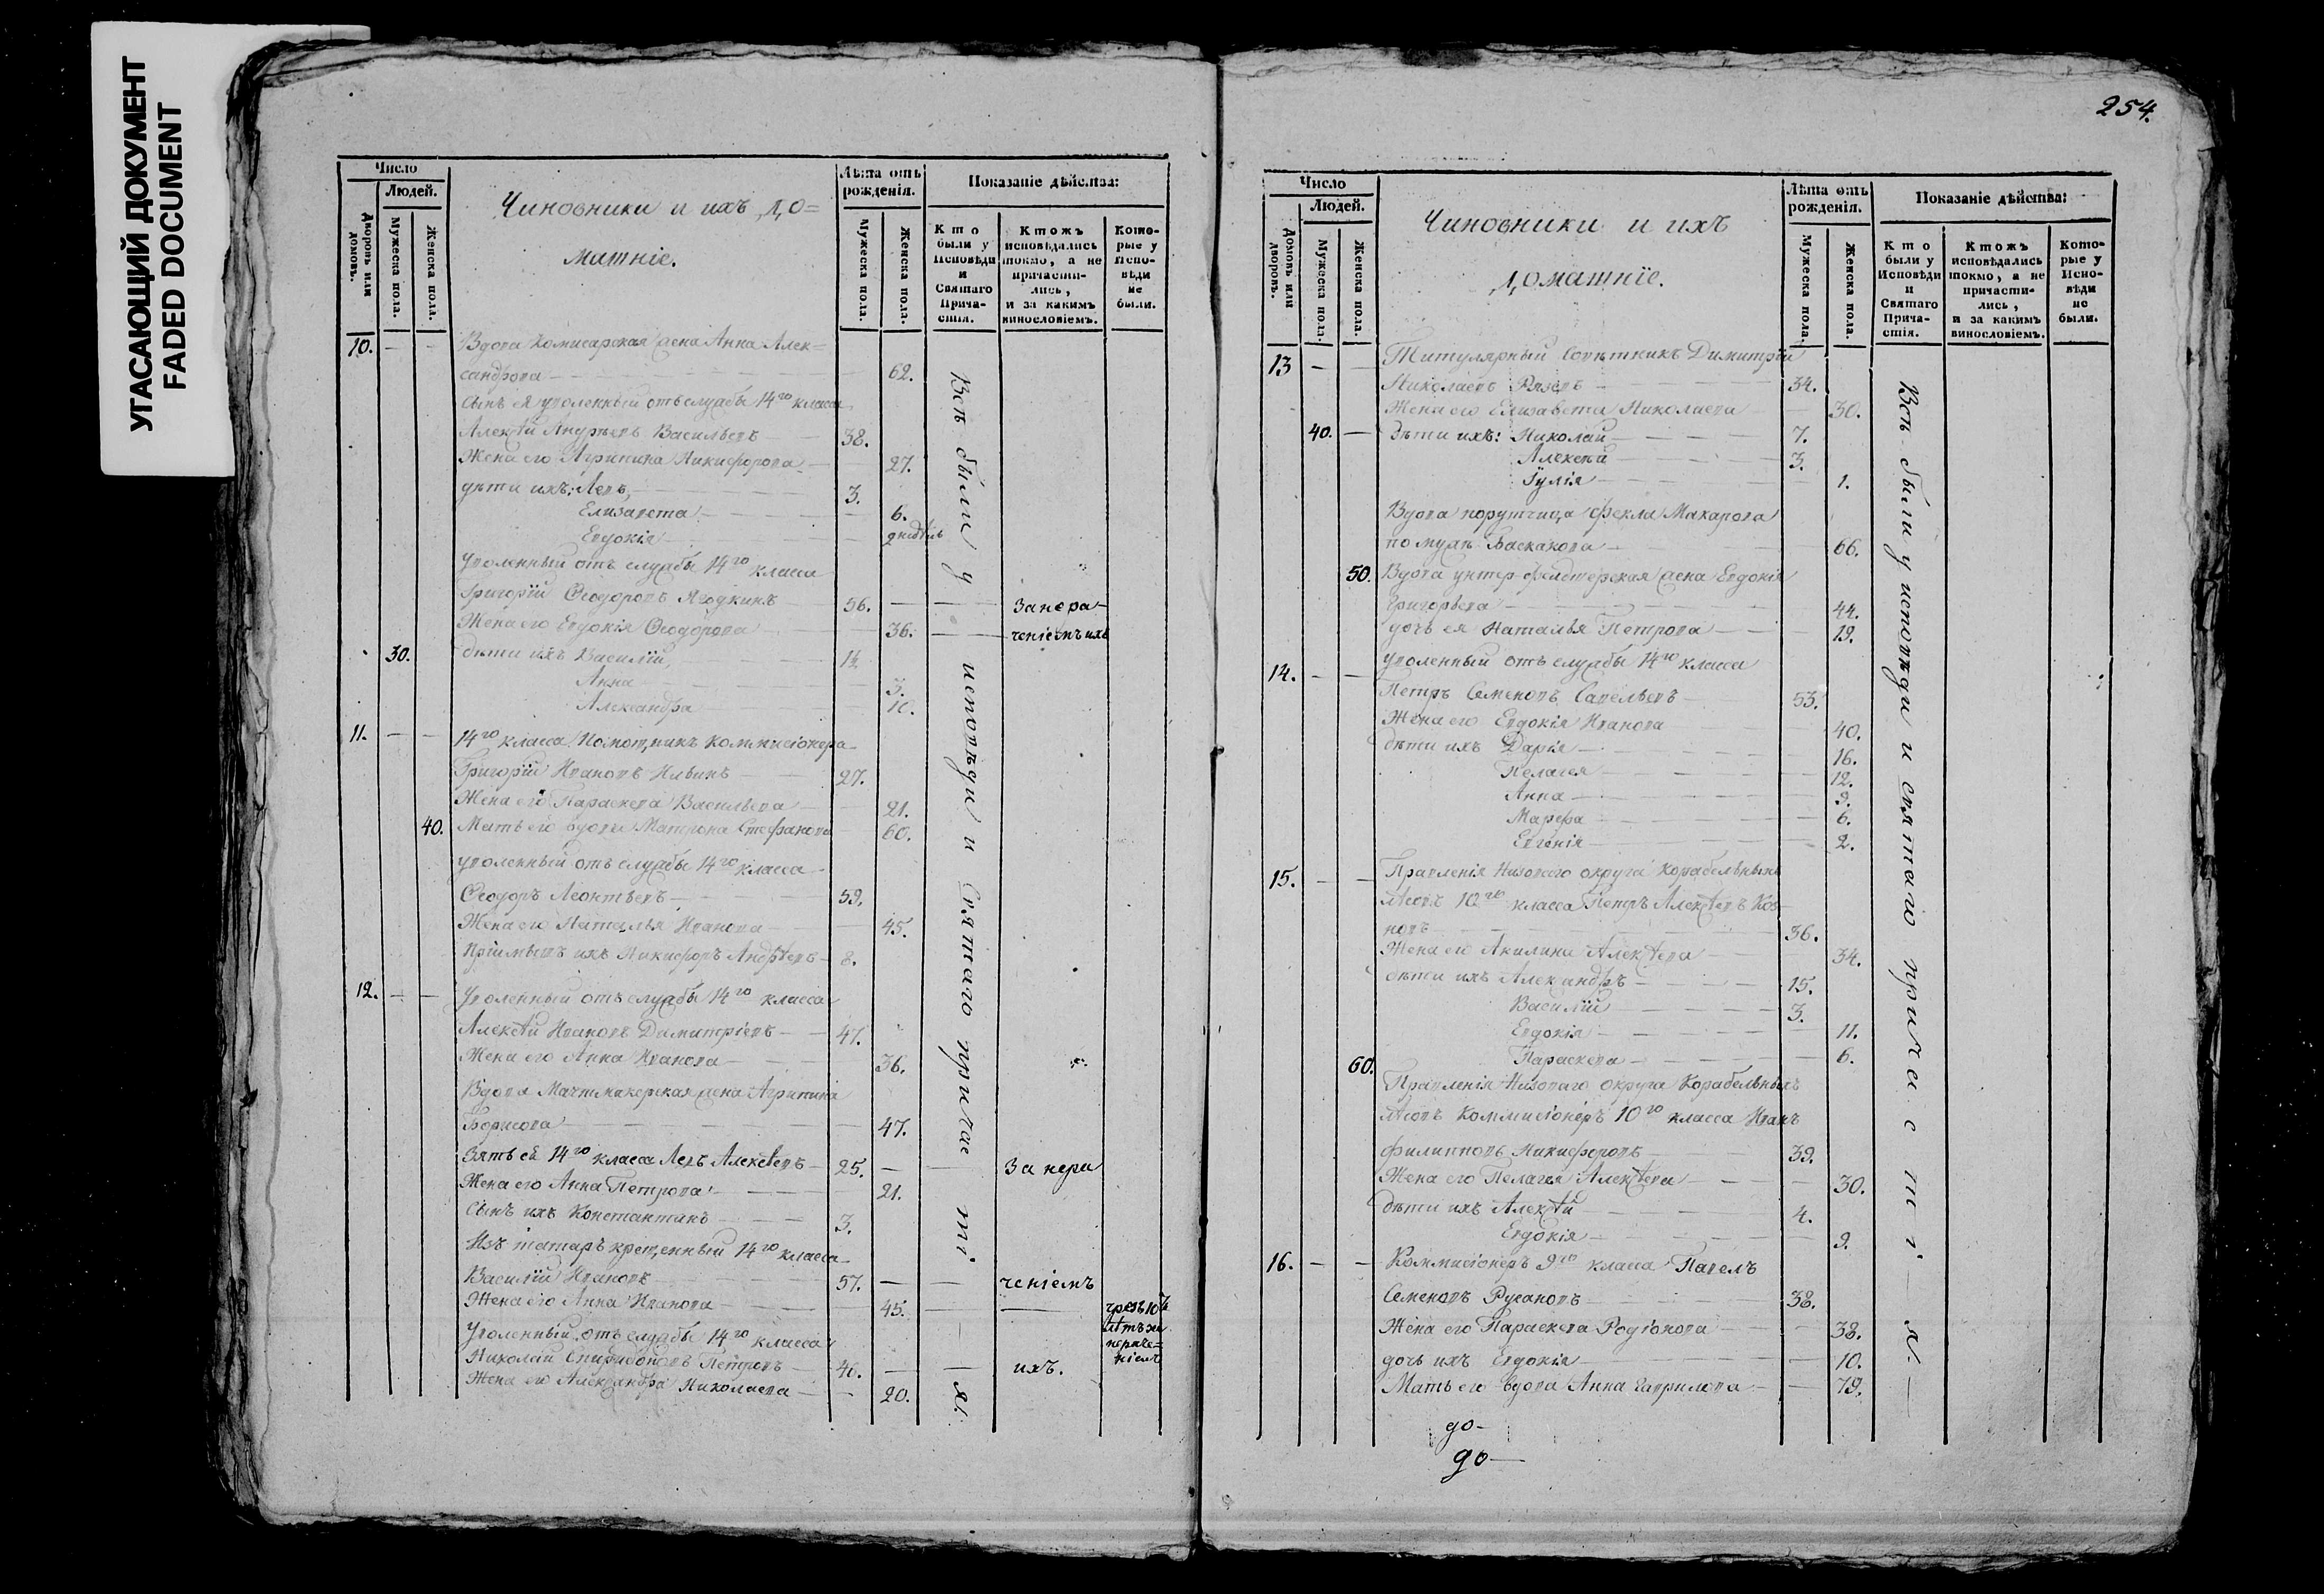 УГАСАЮЩИЙ ДОКУМЕНТ
FADED DOCUMENT
Число
Людей.
Дворовъ или домовъ.
Мужеска пола.
Женска пола.
Чиновники и ихъ до=
машніе.
Лѣта отъ
рожденія.
Мужеска пола.
Женска пола.
Показаніе дѣйства:
Кто
были у
Исповѣди
и
Святаго
Прича-
стія.
Ктожъ
исповѣдались
токмо, а не
причасти-
лись,
и за какимъ
винословіемъ.
Кото-
рые у
Испо-
вѣди
не
были.
10. — — Вдова комисарская жена Анна Алек=
сандрова — 62.
сынъ ея уволенный отъ службы 14го класса
Алексѣй Андреевъ Васильевъ — 38.
Жена его Агрипина Никифорова — 27.
дѣти ихъ: Левъ, — 3.
Елизавета — 6.
Евдокія —
Уволенный отъ службы 14го класса
Григорій Ѳеодоровъ Ягодкинъ — 56. — — За нера-
Жена его Евдокія Ѳеодорова — 36. — — ченіемъ ихъ
30. дѣти ихъ Василій, — 1½
Анна — 3.
Александра — 10.
11. — — 14го класса Помощникъ коммисіонера
Григорій Ивановъ Ильинъ — 27.
Жена его Параскева Васильева — 21.
40. Мать его вдова Матрона Стефанова — 60.
уволенный отъ службы 14го класса
Ѳеодоръ Леонтьевъ — 59.
Жена его Наталья Иванова — 45.
Пріймышъ ихъ Никифоръ Андрѣевъ — 8.
12. — — Уволенный отъ службы 14го класса
Алексѣй Ивановъ Димитріевъ — 47.
Жена его Анна Иванова — 36.
Вдова Мачтмакерская жена Агрипина
Борисова — 47.
Зять ей 14го класса Левъ Алексѣевъ — 25. — — За нера
Жена его Анна Петрова — 21.
Сынъ ихъ Константинъ — 3.
Изъ татаръ крещенный 14го класса
Василій Ивановъ — 57. — — ченіемъ
Жена его Анна Иванова — 45. — —
Уволенный отъ службы 14го класса
Николай Спиридоновъ Петровъ — 46. — — ихъ.
Жена его Александра Николаева — 20.
Всѣ были у исповѣди и святаго причастія.
нераче=
ніемъ
254.
Число
Людей.
Домовъ или дворовъ.
Мужеска пола.
Женска пола.
Чиновники и ихъ
домашніе.
Лѣта отъ
рожденія.
Мужеска пола.
Женска пола.
Показаніе дѣйства:
Кто
были у
Исповѣди
и
Святаго
Прича-
стія.
Ктожъ
исповѣдались
токмо, а не
причасти-
лись,
и за какимъ
винословіемъ.
Кото-
рые у
Испо-
вѣди
не
были.
13 — — Титулярный Совѣтникъ Димитрій
Николаевъ — 34.
Жена его Елизавета Николаева — 30.
40. — дѣти ихъ: Николай — 7.
Алексѣй — 3.
Іулія — 1.
Вдова порутчица Фекла Макарова
по мужѣ Баскакова — 66.
50. Вдова унтер-фельдшерская жена Евдокія
Григорьева — 44.
дочь ея Наталья Петрова — 19.
14. — — уволенный отъ службы 14го класса
Петръ Семеновъ Савельевъ — 53.
Жена его Евдокія Иванова — 40.
дѣти ихъ Дарія — 16.
Пелагея — 12.
Анна — 9.
Марфа — 6.
Евгенія — 2.
15. — — Правленія Низоваго округа корабельныхъ
лѣсовъ 10го класса Петръ Алексѣевъ
новъ — 36.
Жена его Акилина Алексѣева — 34.
дѣти ихъ Александръ — 15.
Василій — 3.
Евдокія — 11.
60. Параскева — 6.
Правленія Низоваго округа Корабельныхъ
лѣсовъ Коммисіонеръ 10го класса Иванъ
Филипповъ Никифоровъ — 39.
Жена его Пелагея Алексѣева — 30.
дѣти ихъ Алексѣй — 4.
Евдокія — 9.
16. — — Коммисіонеръ 9го класса Павелъ
Семеновъ Русановъ — 38.
Жена его Параскева Родіонова — 38.
дочь ихъ Евдокія — 10.
Мать его вдова Анна Гаврилова — 79.
Всѣ были у исповѣди и святаго причастія.
до-
до-